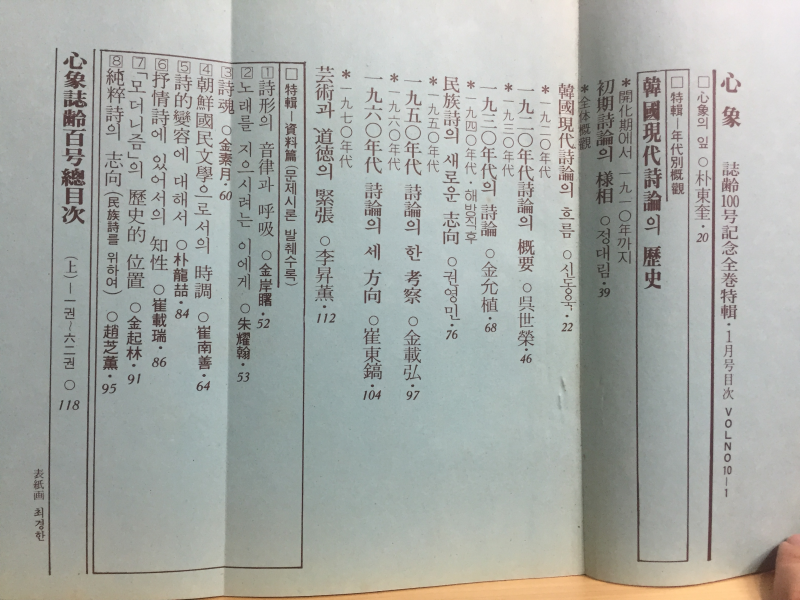 心象 誌齡100号記念全巻特輯·1月号目次 VOLNO 10-1
□心象의 잎 ○朴東奎·20
□特輯—年代別概観
韓國現代詩論의 歷史
*開化期에서 一九一○年까지
初期詩論의 樣相 ○정대림·39
*全体概観
韓國現代詩論의 흐름 ○신동욱·22
*一九二○年代
一九二○年代詩論의 概要 ○吳世榮·46
*一九三○年代
一九三○年代의 詩論 ○金允植·68
*一九四○年代·해방직후
民族詩의 새로운 志向 ○권영민·76
*一九五○年代
一九五○年代 詩論의 한 考察 ○金載弘·97
*一九六○年代
一九六○年代 詩論의 세 方向 ○崔東鎬·104
*一九七○年代
芸術과 道徳의 緊張 ○李昇薰·112
□特輯—資料篇(문제시론 발췌수록)
①詩形의 音律과 呼吸 ○金岸曙·52
②노래를 지으시려는 이에게 ○朱耀翰·53
③詩魂 ○金素月·60
④朝鮮國民文學으로서의 時調 ○崔南善·64
⑤詩的變容에 대해서 ○朴龍喆·84
⑥抒情詩에 있어서의 知性 ○崔載瑞·86
⑦「모더니즘」의 歷史的 位置 ○金起林·91
⑧純粹詩의 志向(民族詩를 위하여) ○趙芝薰·95
心象誌齡百号總目次 (上)—一권~六二권 ○118
表紙画 최경한